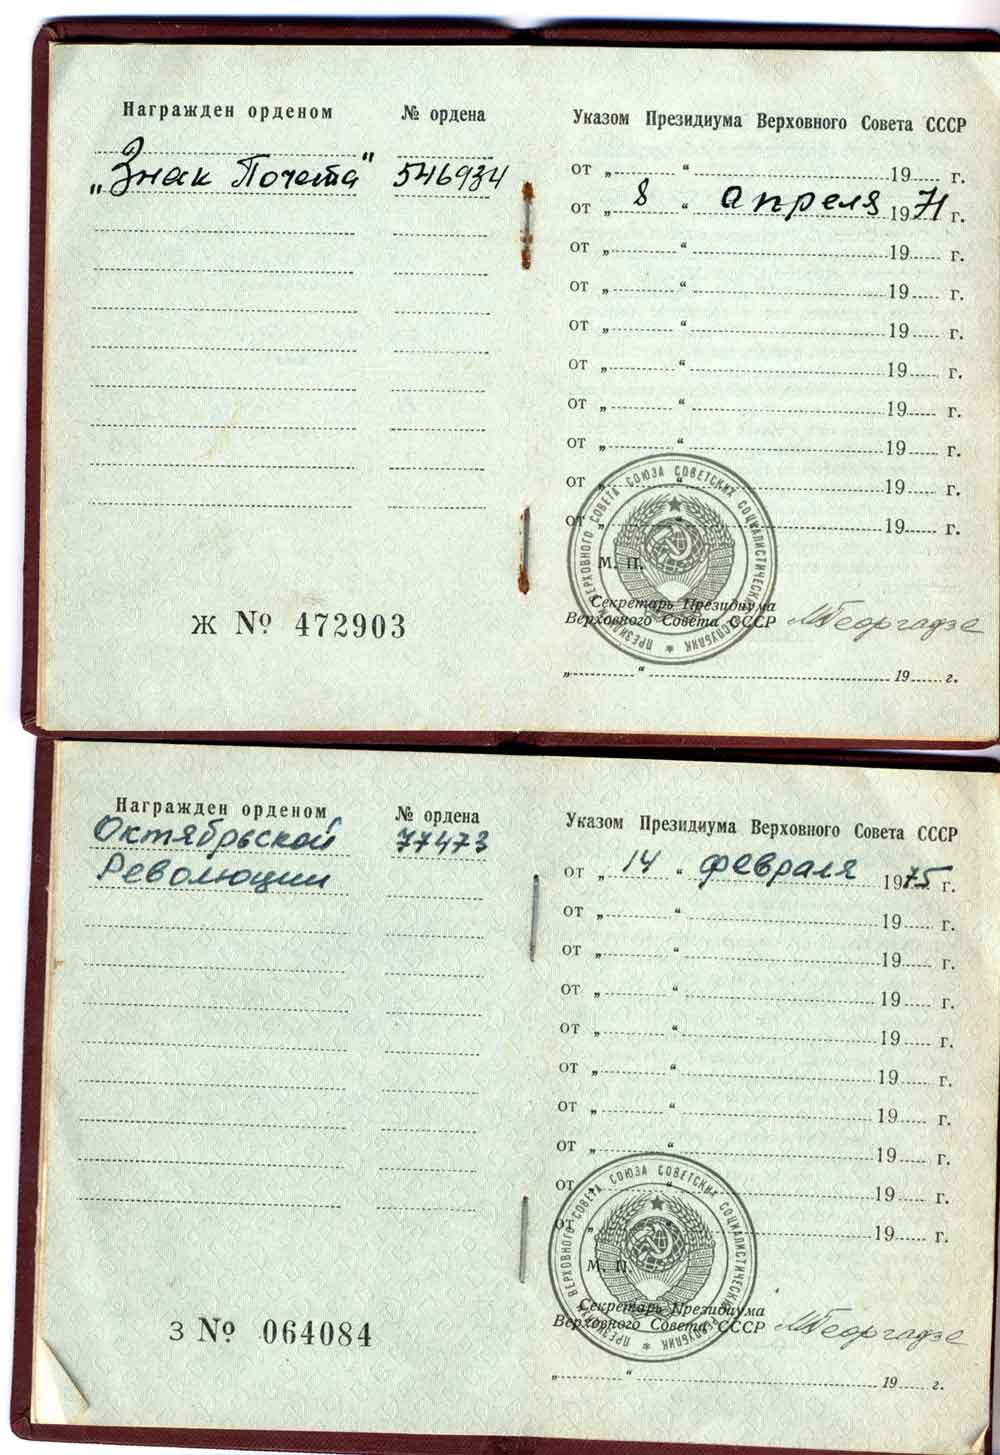 Награжден орденом № ордена
„Знак Почета" 546934
Ж № 472903
Указом Президиума Верховного Совета СССР
от „ “ 19 г.
от „ 8 “ апреля 1971 г.
от „ “ 19 г.
от „ “ 19 г.
от „ “ 19 г.
от „ “ 19 г.
от „ “ 19 г.
от „ “ 19 г.
от „ “ 19 г.
от „ “ 19 г.
М. П.
ПРЕЗИДИУМ ВЕРХОВНОГО СОВЕТА СОЮЗА СОВЕТСКИХ СОЦИАЛИСТИЧЕСКИХ РЕСПУБЛИК
Секретарь Президиума
Верховного Совета СССР МГеоргадзе
„ “ 19 г.
Награжден орденом № ордена
Октябрьской 77473
Революции
З № 064084
Указом Президиума Верховного Совета СССР
от „ 14 “ февраля 1975 г.
от „ “ 19 г.
от „ “ 19 г.
от „ “ 19 г.
от „ “ 19 г.
от „ “ 19 г.
от „ “ 19 г.
от „ “ 19 г.
от „ “ 19 г.
от „ “ 19 г.
М. П.
ПРЕЗИДИУМ ВЕРХОВНОГО СОВЕТА СОЮЗА СОВЕТСКИХ СОЦИАЛИСТИЧЕСКИХ РЕСПУБЛИК
Секретарь Президиума
Верховного Совета СССР МГеоргадзе
„ “ 19 г.